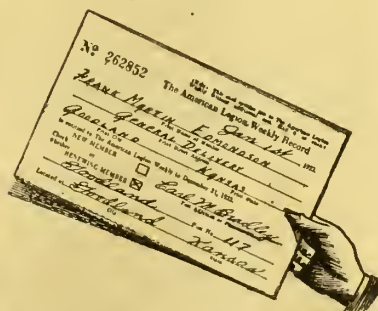 No 262852
The American Legion Weekly Record
Jan 1st 1922.
FRANK MARTIN EDMONDSON
GENERAL DELIVERY
GOODLAND KANSAS
is entered to The American Legion Weekly to December 31, 1922.
Check NEW MEMBER
whether or
RENEWING MEMBER
Earl M Bradley
Goodland Post No. 117
Located at Goodland Kansas
City State